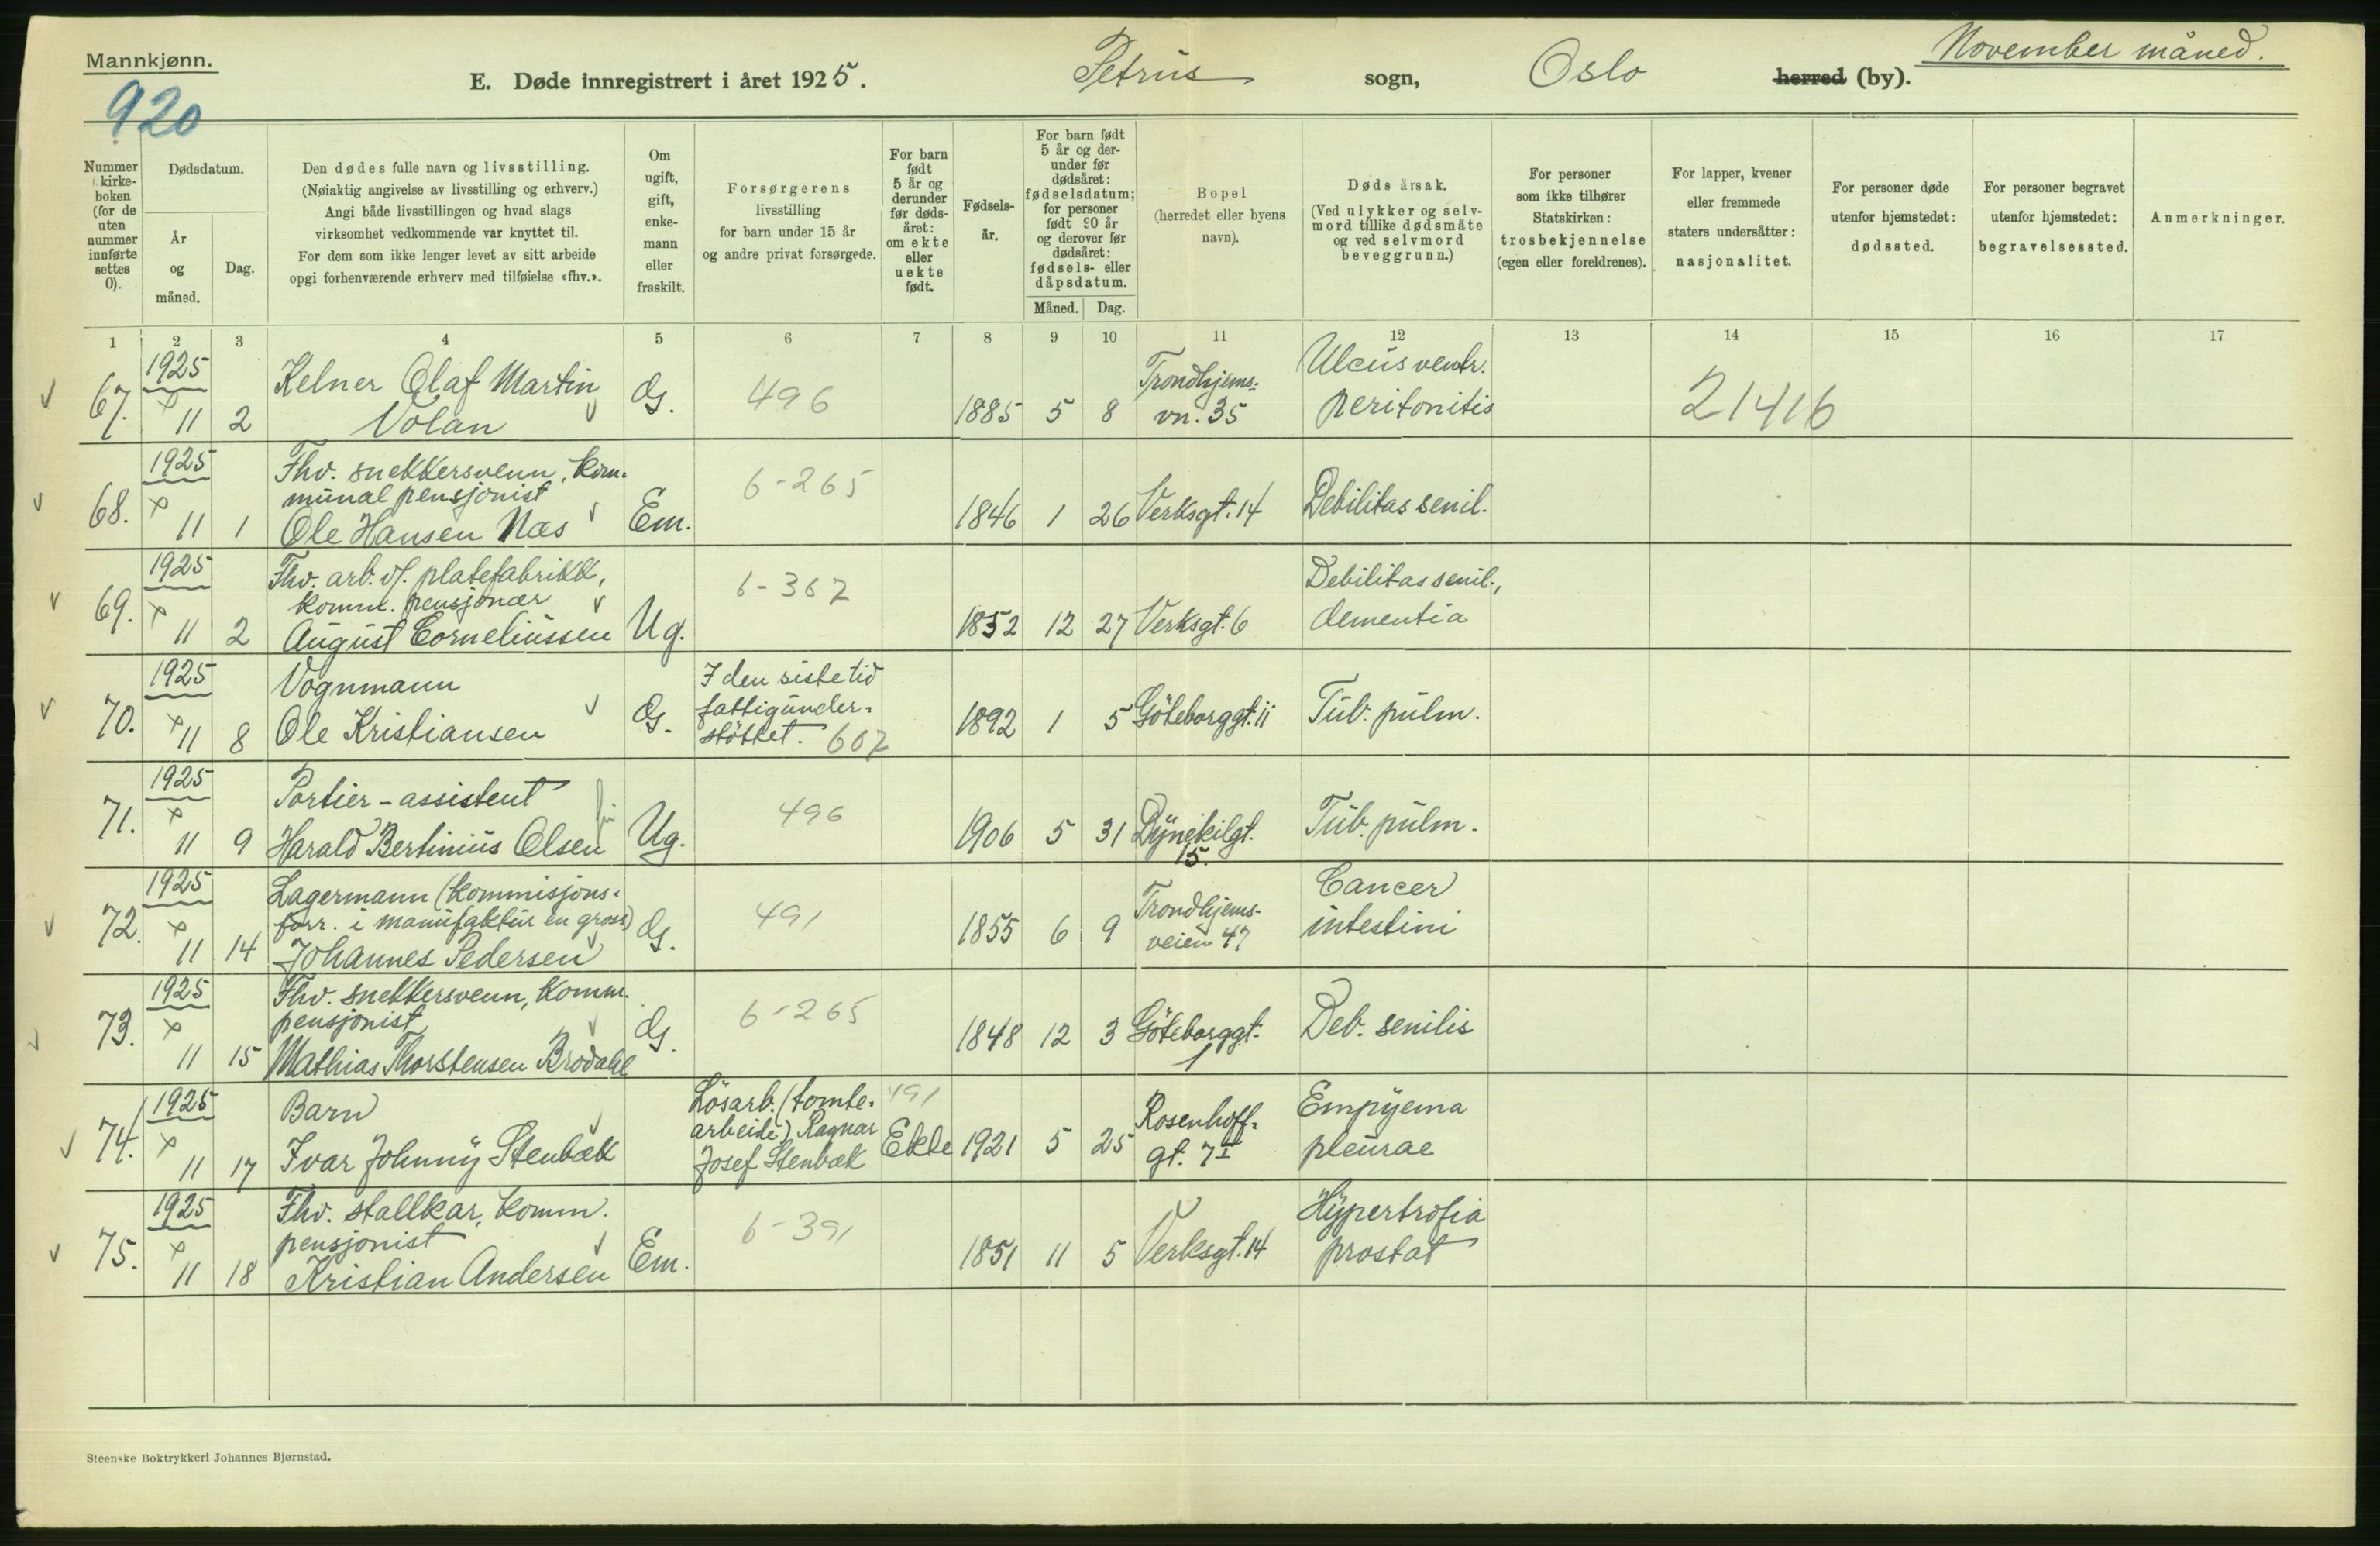 Mannkjønn.
920
E. Døde innregistrert i året 1925.
Petrus sogn,
Oslo herred (by).
November måned.
Nummer i kirkeboken (for de uten nummer innførte settes 0).
Dødsdatum.
År og måned.
Dag.
Den dødes fulle navn og livsstilling.
(Nøiaktig angivelse av livsstilling og erhverv.)
Angi både livsstillingen og hvad slags
virksomhet vedkommende var knyttet til.
For dem som ikke lenger levet av sitt arbeide
opgi forhenværende erhverv med tilføielse «fhv.».
Om ugift, gift, enkemann eller fraskilt.
Forsørgerens
livsstilling
for barn under 15 år
og andre privat forsørgede.
For barn født 5 år og derunder før dødsåret: om ekte eller uekte født.
Fødselsår.
For barn født 5 år og derunder før dødsåret: fødselsdatum; for personer født 90 år og derover før dødsåret: fødsels- eller dåpsdatum.
Måned. Dag.
Bopel
(herredet eller byens
navn).
Dødsårsak.
(Ved ulykker og selvmord tillike dødsmåte og ved selvmord beveggrunn.)
For personer
som ikke tilhører
Statskirken:
trosbekjennelse
(egen eller foreldrenes).
For lapper, kvener
eller fremmede
staters undersåtter:
nasjonalitet.
For personer døde
utenfor hjemstedet:
dødssted.
For personer begravet
utenfor hjemstedet:
begravelsessted.
Anmerkninger.
1 2 3 4 5 6 7 8 9 10 11 12 13 14 15 16 17
67. 1925 11 2 Kelner Olaf Martin
Volan
G. 496 1885 5 8 Trondhjems-
vn. 35
Ulcus ventr.
peritonitis
21416
68. 1925 11 1 Fhv. snekkersvenn, kom-
munal pensjonist
Ole Hansen Næs
Em. 6-265 1846 1 26 Verksgt. 14 Debilitas senil.
69. 1925 11 2 Fhv. arb. v/. platefabrikk,
komm. pensjonær
August Corneliussen
Ug. 6-367 1852 12 27 Verksgt. 6 Debilitas senil.,
dementia
70. 1925 11 8 Vognmann
Ole Kristiansen
G. I den siste tid
fattigunder-
støttet. 607
1892 1 5 Göteborggt. 11 Tub. pulm.
71. 1925 11 9 Portier-assistent
Harald Bertinius Olsen
Ug. 496 1906 5 31 Dynekilgt.
15.
Tub. pulm.
72. 1925 11 14 Lagermann (kommisjons-
forr. i manufaktur en gross)
Johannes Pedersen
G. 491 1855 6 9 Trondhjems-
veien 47
Cancer
intestini
73. 1925 11 15 Fhv. snekkersvenn, komm.
pensjonist
Mathias Thorstensen Brodahl
G. 6-265 1848 12 3 Göteborggt.
1
Deb. senilis
74. 1925 11 17 Barn
Ivar Johnny Stenbæk
Lösarb. (tomte-
arbeide) Ragnar
Josef Stenbæk
491
Ekte 1921 5 25 Rosenhoff-
gt. 7 I
Empyema
pleurae
75. 1925 11 18 Fhv. stallkar, komm.
pensjonist
Kristian Andersen
Em. 6-391 1851 11 5 Verksgt. 14 Hypertrofia
prostat
Steenske Boktrykkeri Johannes Bjørnstad.